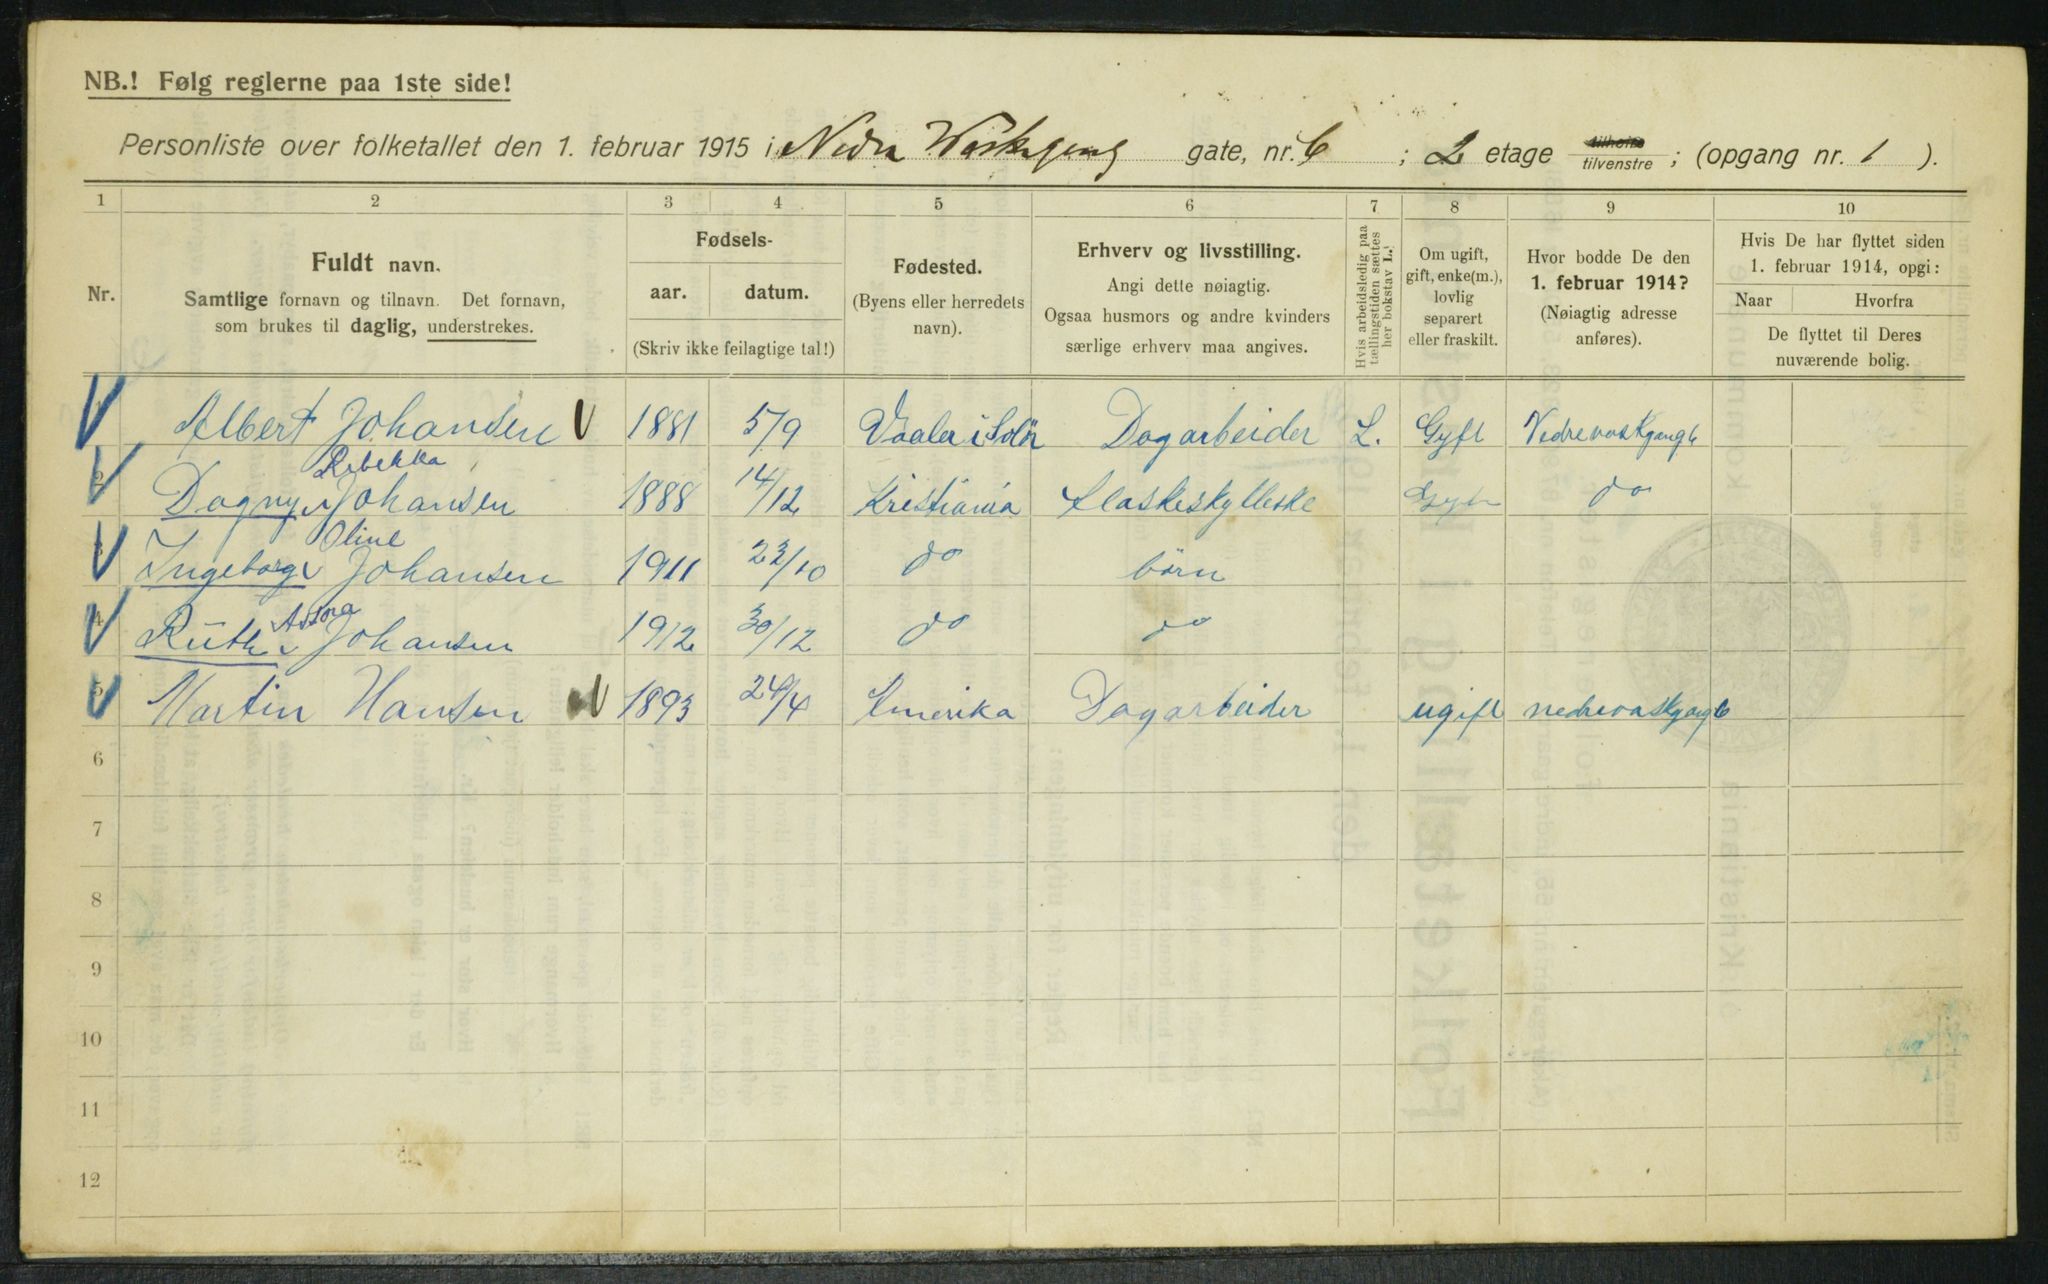 NB.! Følg reglerne paa 1ste side!
Personliste over folketallet den 1. februar 1915 i Nedre Vaskegang gate, nr. 6 ; 2 etage tilhøire tilvenstre ; (opgang nr. 1 ).
1 2 3 4 5 6 7 8 9 10
Nr.
Fuldt navn.
Samtlige fornavn og tilnavn. Det fornavn,
som brukes til daglig, understrekes.
Fødsels-
aar. datum.
(Skriv ikke feilagtige tal!)
Fødested.
(Byens eller herredets
navn).
Erhverv og livsstilling.
Angi dette nøiagtig.
Ogsaa husmors og andre kvinders
særlige erhverv maa angives.
Hvis arbeidsledig paa
tællingstiden sættes
her bokstav L.
Om ugift,
gift, enke(m.),
lovlig
separert
eller fraskilt.
Hvor bodde De den
1. februar 1914?
(Nøiagtig adresse
anføres).
Hvis De har flyttet siden
1. februar 1914, opgi:
Naar Hvorfra
De flyttet til Deres
nuværende bolig.
Albert Johansen 1881 5/9 Vaaler i Solör Dagarbeider L. Gyft Nedrevaskgang 6
Rebekka
2 Dagny Johansen 1888 14/12 Kristiania Flaskeskylleske Gyft do
Oline
3 Ingeborg Johansen 1911 23/10 do börn
Asora
4 Ruth Johansen 1912 30/12 do do
5 Martin Hansen 1893 24/4 Amerika Dagarbeider ugift nedrevaskgang 6
6
7
8
9
10
11
12